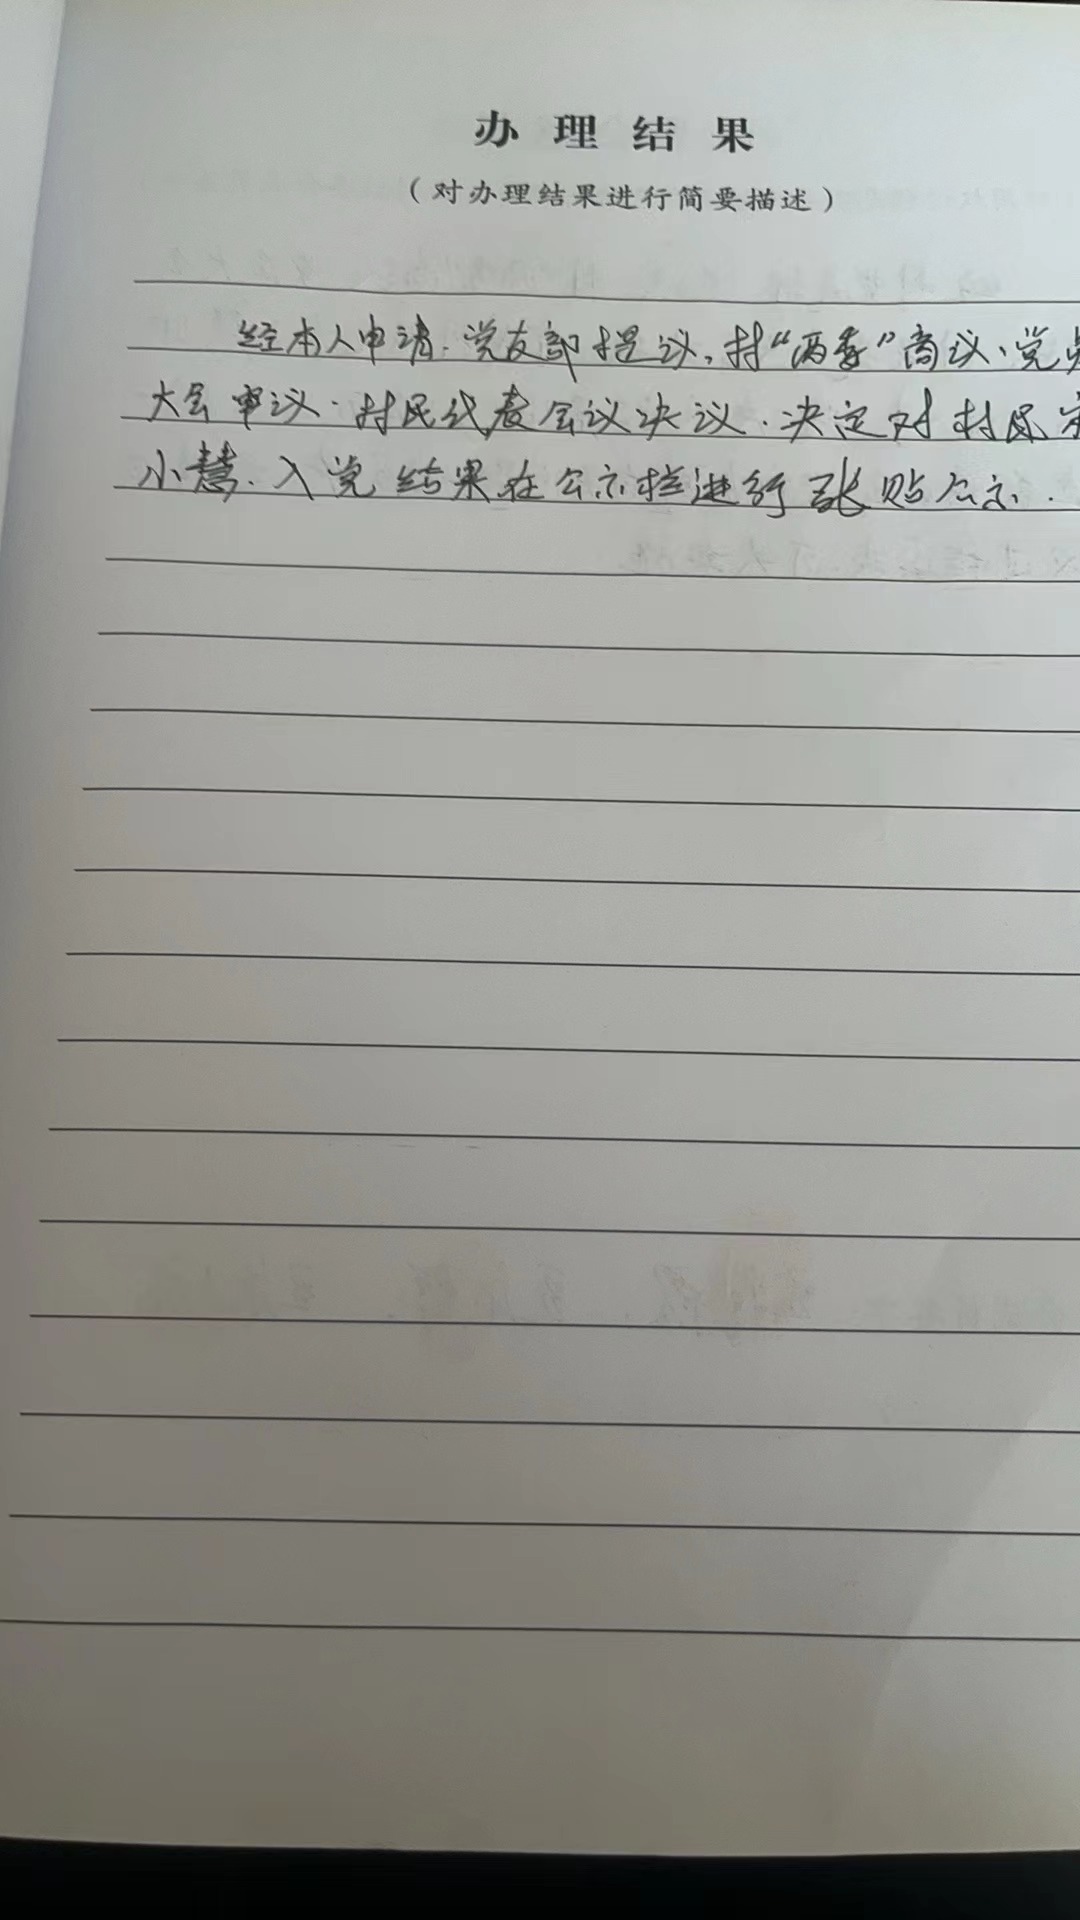 办理结果
（对办理结果进行简要描述）
经本人申请、党支部提议、村“两委”商议、党员
大会审议、村民代表会议决议、决定对村民宋
小慧、入党结果在公示栏进行张贴公示.